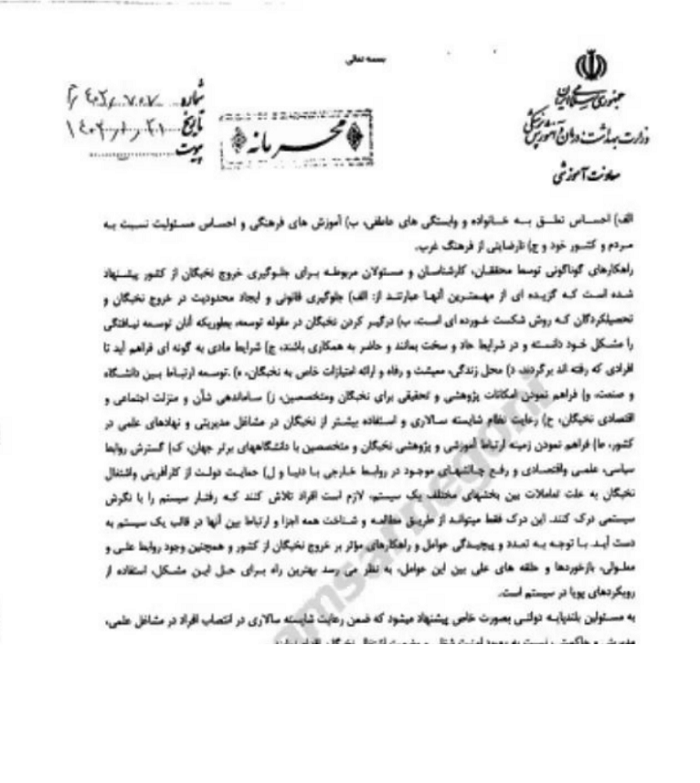 بسمه تعالی
جمهوری اسلامی ایران
وزارت بهداشت، درمان و آموزش پزشکی
معاونت آموزشی
شماره
تاریخ
پیوست
محرمانه
الف) احساس تعلق به خانواده و وابستگی های عاطفی، ب) آموزش های فرهنگی و احساس مسئولیت نسبت به
مردم و کشور خود و ج) نارضایتی از فرهنگ غرب.
راهکارهای گوناگونی توسط محققان، کارشناسان و مسئولان مربوطه برای جلوگیری خروج نخبگان از کشور پیشنهاد
شده است که گزیده ای از مهمترین آنها عبارتند از: الف) جلوگیری قانونی و ایجاد محدودیت در خروج نخبگان و
تحصیلکردگان که روش شکست خورده ای است، ب) درگیر کردن نخبگان در مقوله توسعه، بطوریکه آنان توسعه نیافتگی
را مشکل خود دانسته و در شرایط حاد و سخت بمانند و حاضر به همکاری باشند، ج) شرایط مادی به گونه ای فراهم آید تا
افرادی که رفته اند برگردند، د) محل زندگی، معیشت و رفاه و ارائه امتیازات خاص به نخبگان، ه) .توسعه ارتباط بین دانشگاه
و صنعت، و) فراهم نمودن امکانات پژوهشی و تحقیقی برای نخبگان ومتخصصین، ز) ساماندهی شأن و منزلت اجتماعی و
اقتصادی نخبگان، ح) رعایت نظام شایسته سالاری و استفاده بیشتر از نخبگان در مشاغل مدیریتی و نهادهای علمی در
کشور، فراهم نمودن زمینه ارتباط آموزشی و پژوهشی نخبگان و متخصصین با دانشگاههای برتر جهان، ک) گسترش روابط
سیاسی، علمی واقتصادی و رفع چالشهای موجود در روابط خارجی با دنیا و ل) حمایت دولت از کارآفرینی واشتغال
نخبگان به علت تعاملات بین بخشهای مختلف یک سیستم، لازم است افراد تلاش کنند که رفتار سیستم را با نگرش
سیستمی درک کنند. این درک فقط میتواند از طریق مطالعه و شناخت همه اجزا و ارتباط بین آنها در قالب یک سیستم به
دست آید. با توجه به تعدد و پیچیدگی عوامل و راهکارهای مؤثر بر خروج نخبگان از کشور و همچنین وجود روابط علی و
معلولی، بازخوردها و حلقه های علی بین این عوامل، به نظر می رسد بهترین راه برای حل این مشکل، استفاده از
رویکردهای پویا در سیستم است.
به مسئولین بلندپایه دولتی بصورت خاص پیشنهاد میشود که ضمن رعایت شایسته سالاری در انتصاب افراد در مشاغل علمی،